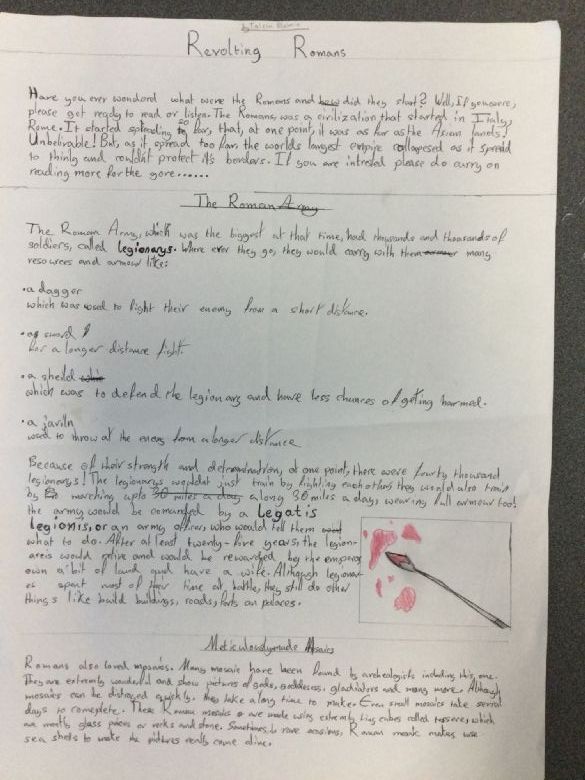 Revolting Romans
Have you ever wonderd what were the Romans and how did they start? Well, If you were,
please get ready to read or listen. The Romans was a civilization that started in Italy,
Rome. It started spreading so far, that, at one point, it was as far as the Asian lands!
Unbelivable! But, as it spread too far the worlds longest empire collapesed as it spread
to thinly and couldn't protect it's borders. If you are intrested please do carry on
reading more for the gore......
The Roman Army
The Roman Army, which was the biggest at that time, had thousands and thousands of
soldiers, called legionarys. Where ever they go, they would carry with them many
resources and armour like:
• a dagger
which was used to fight their enemy from a short distance.
• a sword
for a longer distance fight.
• a sheild
which was to defend the legionary and have less chances of geting harmed.
• a javiln
used to throw at the enemy from a longer distance
Because of their strength and determination, at one point, there were fourty thousand
legionarys! The legionarys wouldnt just train by fighting eachother they would also train
by marching upto 30 miles a day along 30 miles a day, wearing full armour too!
the army would be comanded by a legatis
legionis, or an army officer, who would tell them
what to do. After at least twenty-five years, the legion-
aries would retire and would be rewarded by the emperor
own a bit of land and have a wife. Although legionar-
es spent most of their time at battle, they still do other
things like build buildings, roads, forts or palaces.
Meticulously made Mosaics
Romans also loved mosaics. Many mosaic have been found by archeologists including this one.
They are extremly wonderful and show pictures of gods, goddesses, gladiators and many more. Although
mosaics can be distroyed quickly, they take a long time to make. Even small mosaics take serval
days to complete. These Roman mosaics are made using extremly tiny cubes called tessere, which
are mostly glass pieces or rocks and stone. Sometimes, in rare occasions, Roman mosaic makers use
sea shells to make the pictures really come alive.